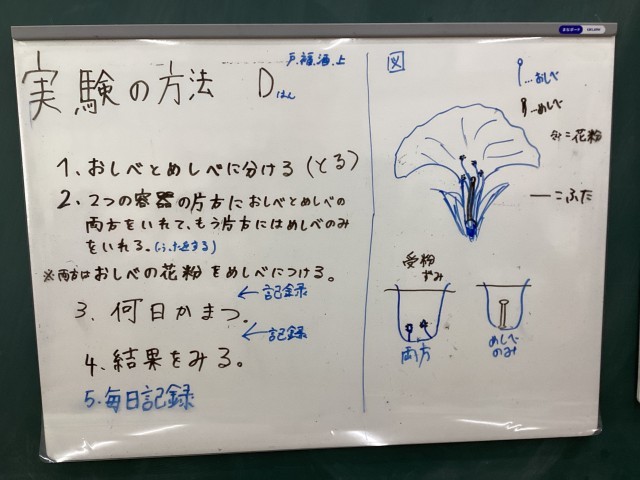 実験の方法 Dはん
戸.福.酒.上
1. おしべとめしべに分ける(とる)
2. 2つの容器の片方におしべとめしべの
両方をいれて、もう片方にはめしべのみ
をいれる。(ふたをする)
※両方はおしべの花粉をめしべにつける。
←記録
3. 何日かまつ。
←記録
4. 結果をみる。
5. 毎日記録
図
…おしべ
…めしべ
=花粉
=ふた
受粉
ずみ
両方
めしべ
のみ